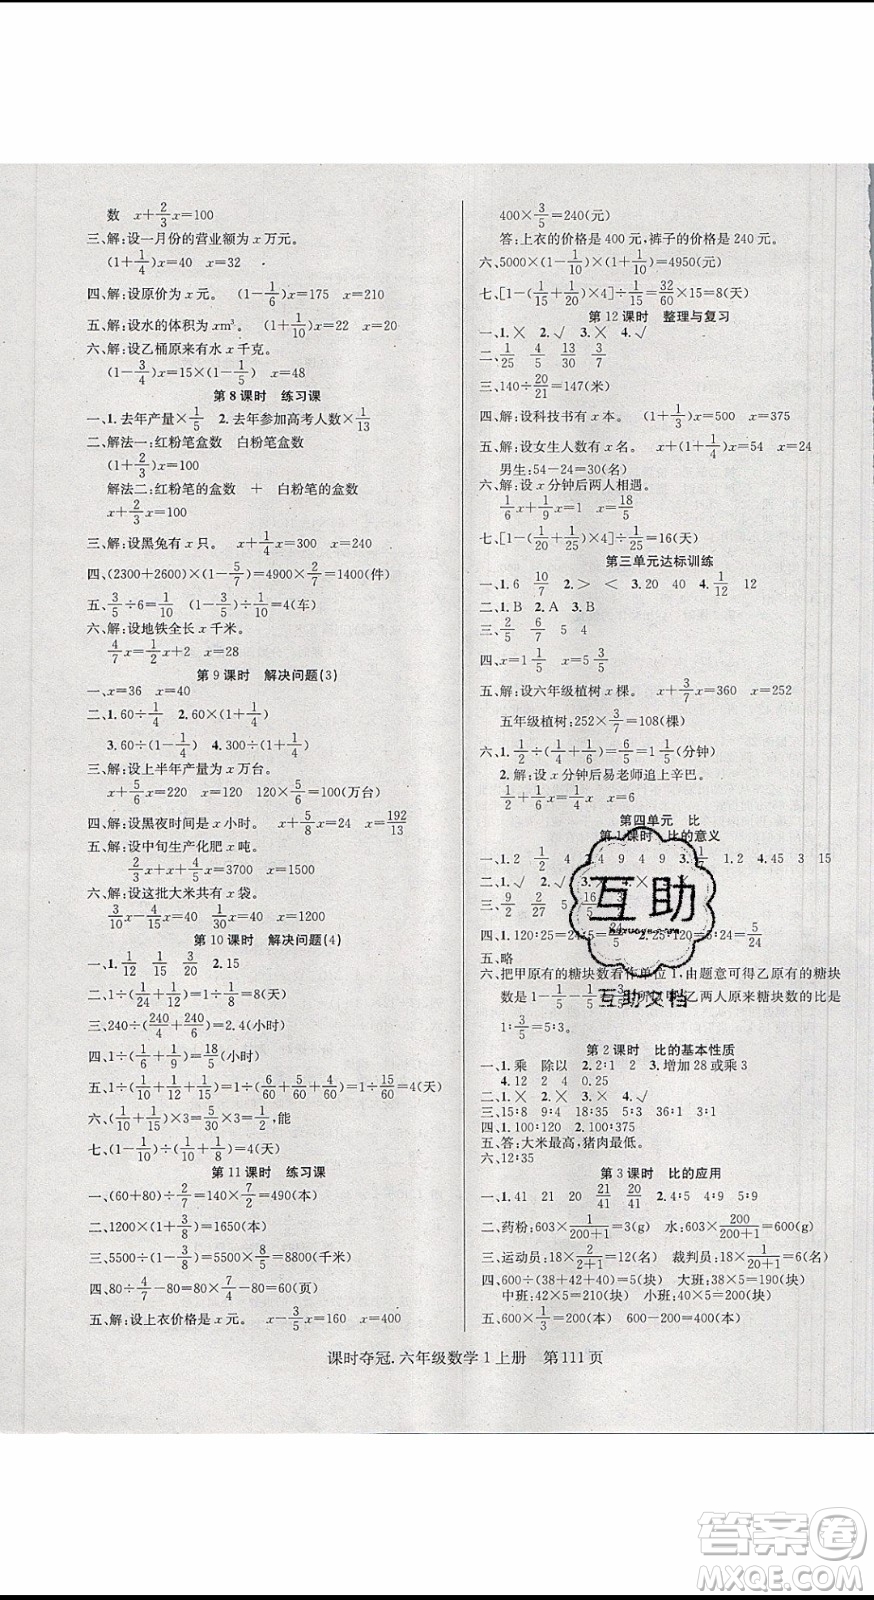 数 x+2/3x=100
三、解:设一月份的营业额为 x 万元。
(1+1/4)x=40 x=32
四、解:设原价为 x 元。 (1-1/6)x=175 x=210
五、解:设水的体积为 xm³。 (1+1/10)x=22 x=20
六、解:设乙桶原来有水 x 千克。
(1-3/4)x=15×(1-1/5) x=48
第 8 课时 练习课
一、1.去年产量×1/5 2.去年参加高考人数×1/13
二、解法一:红粉笔盒数 白粉笔盒数
(1+2/3)x=100
解法二:红粉笔的盒数 + 白粉笔的盒数
x+2/3x=100
三、解:设黑兔有 x 只。 x+1/4x=300 x=240
四、(2300+2600)×(1-5/7)=4900×2/7=1400(件)
五、3/5÷6=1/10 (1-3/5)÷1/10=4(车)
六、解:设地铁全长 x 千米。
4/7x=1/2x+2 x=28
第 9 课时 解决问题(3)
一、x=36 x=40
二、1.60÷1/4 2.60×(1+1/4)
3.60÷(1-1/4) 4.300÷(1+1/4)
三、解:设上半年产量为 x 万台。
x+5/6x=220 x=120 120×5/6=100(万台)
四、解:设黑夜时间是 x 小时。 x+5/8x=24 x=192/13
五、解:设中旬生产化肥 x 吨。
2/3x+x+4/5x=3700 x=1500
六、解:设这批大米共有 x 袋。
3/10x-4/15x=40 1/30x=40 x=1200
第 10 课时 解决问题(4)
一、1.1/12 1/15 3/20 2.15
二、1÷(1/24+1/12)=1÷1/8=8(天)
三、240÷(240/4+240/6)=2.4(小时)
四、1÷(1/6+1/9)=18/5(小时)
五、1÷(1/10+1/12+1/15)=1÷(6/60+5/60+4/60)=1÷15/60=4(天)
六、(1/10+1/15)×3=5/30×3=1/2,能
七、(1-1/10)÷(1/10+1/8)=4(天)
第 11 课时 练习课
一、(60+80)÷2/7=140×7/2=490(本)
二、1200×(1+3/8)=1650(本)
三、5500÷(1-3/8)=5500×8/5=8800(千米)
四、80÷4/7-80=80×7/4-80=60(页)
五、解:设上衣价格是 x 元。 x-3/5x=160 x=400
400×3/5=240(元)
答:上衣的价格是 400 元,裤子的价格是 240 元。
六、5000×(1-1/10)×(1+1/10)=4950(元)
七、[1-(1/15+1/20)×4]÷1/15=32/60×15=8(天)
第 12 课时 整理与复习
一、1.× 2.√ 3.× 4.√
二、1/25 4/5 13/30 3/7
三、140÷20/21=147(米)
四、解:设科技书有 x 本。 (1+1/3)x=360 x=270
五、解:设女生人数有 x 名。 x+(1+1/4)x=54 x=24
男生:54-24=30(名)
六、解:设 x 分钟后两人相遇。
1/6x+1/9x=1 x=18/5
七、[1-(1/20+1/25)×4]÷1/25=16(天)
第三单元达标训练
一、1.6 10/7 2.> < 3.20 40 4.1/12 12
二、1.B 2.A 3.B
三、2/5 6/7 5 4
四、x=1 1/5 x=5 3/5
五、解:设六年级植树 x 棵。 x+3/7x=360 x=252
五年级植树:252×3/7=108(棵)
六、1.1/2÷(1/4+1/6)=6/5=1 1/5(分钟)
2.解:设 x 分钟后易老师追上辛巴。
1/2+1/6x=1/4x x=6
第四单元 比
第 1 课时 比的意义
一、1.2 1/2 4 9 4 9 4 9 3. 1.2 4.45 3 15
二、1.√ 2.√ 3.× 4.×
三、9/2 2/27 5
四、1.120:25=24:5=24/5 2.25:120=5:24=5/24
五、略
六、把甲原有的糖块数看作单位 1,由题意可得乙原有的糖块
数是 1-1/5-1/5=3/5,所以甲、乙两人原来糖块数的比是
1:3/5=5:3。
第 2 课时 比的基本性质
一、1.乘 除以 2.2:1 2 3.增加 28 或乘 3
4.12 2 4 0.25
二、1.× 2.× 3.× 4.√
三、15:8 9:4 18:35 5:3 36:1 3:1
四、1.100:120 2.100:375
五、答:大米最高,猪肉最低。
六、12:35
第 3 课时 比的应用
一、1.41 21 20 21/41 20/41 2.4:5 4:9 5:9
二、药粉:603×1/(200+1)=3(g) 水:603×200/(200+1)=600(g)
三、运动员:18×2/(2+1)=12(名) 裁判员:18×1/(20+1)=6(名)
四、600÷(38+42+40)=5(块) 大班:38×5=190(块)
中班:42×5=210(块) 小班:40×5=200(块)
五、600×1/3=200(本) 600-200=400(本)
课时夺冠.六年级数学 1 上册 第 111 页
互助
huzuoye.com
互助文档
答案圈
MXQE.COM